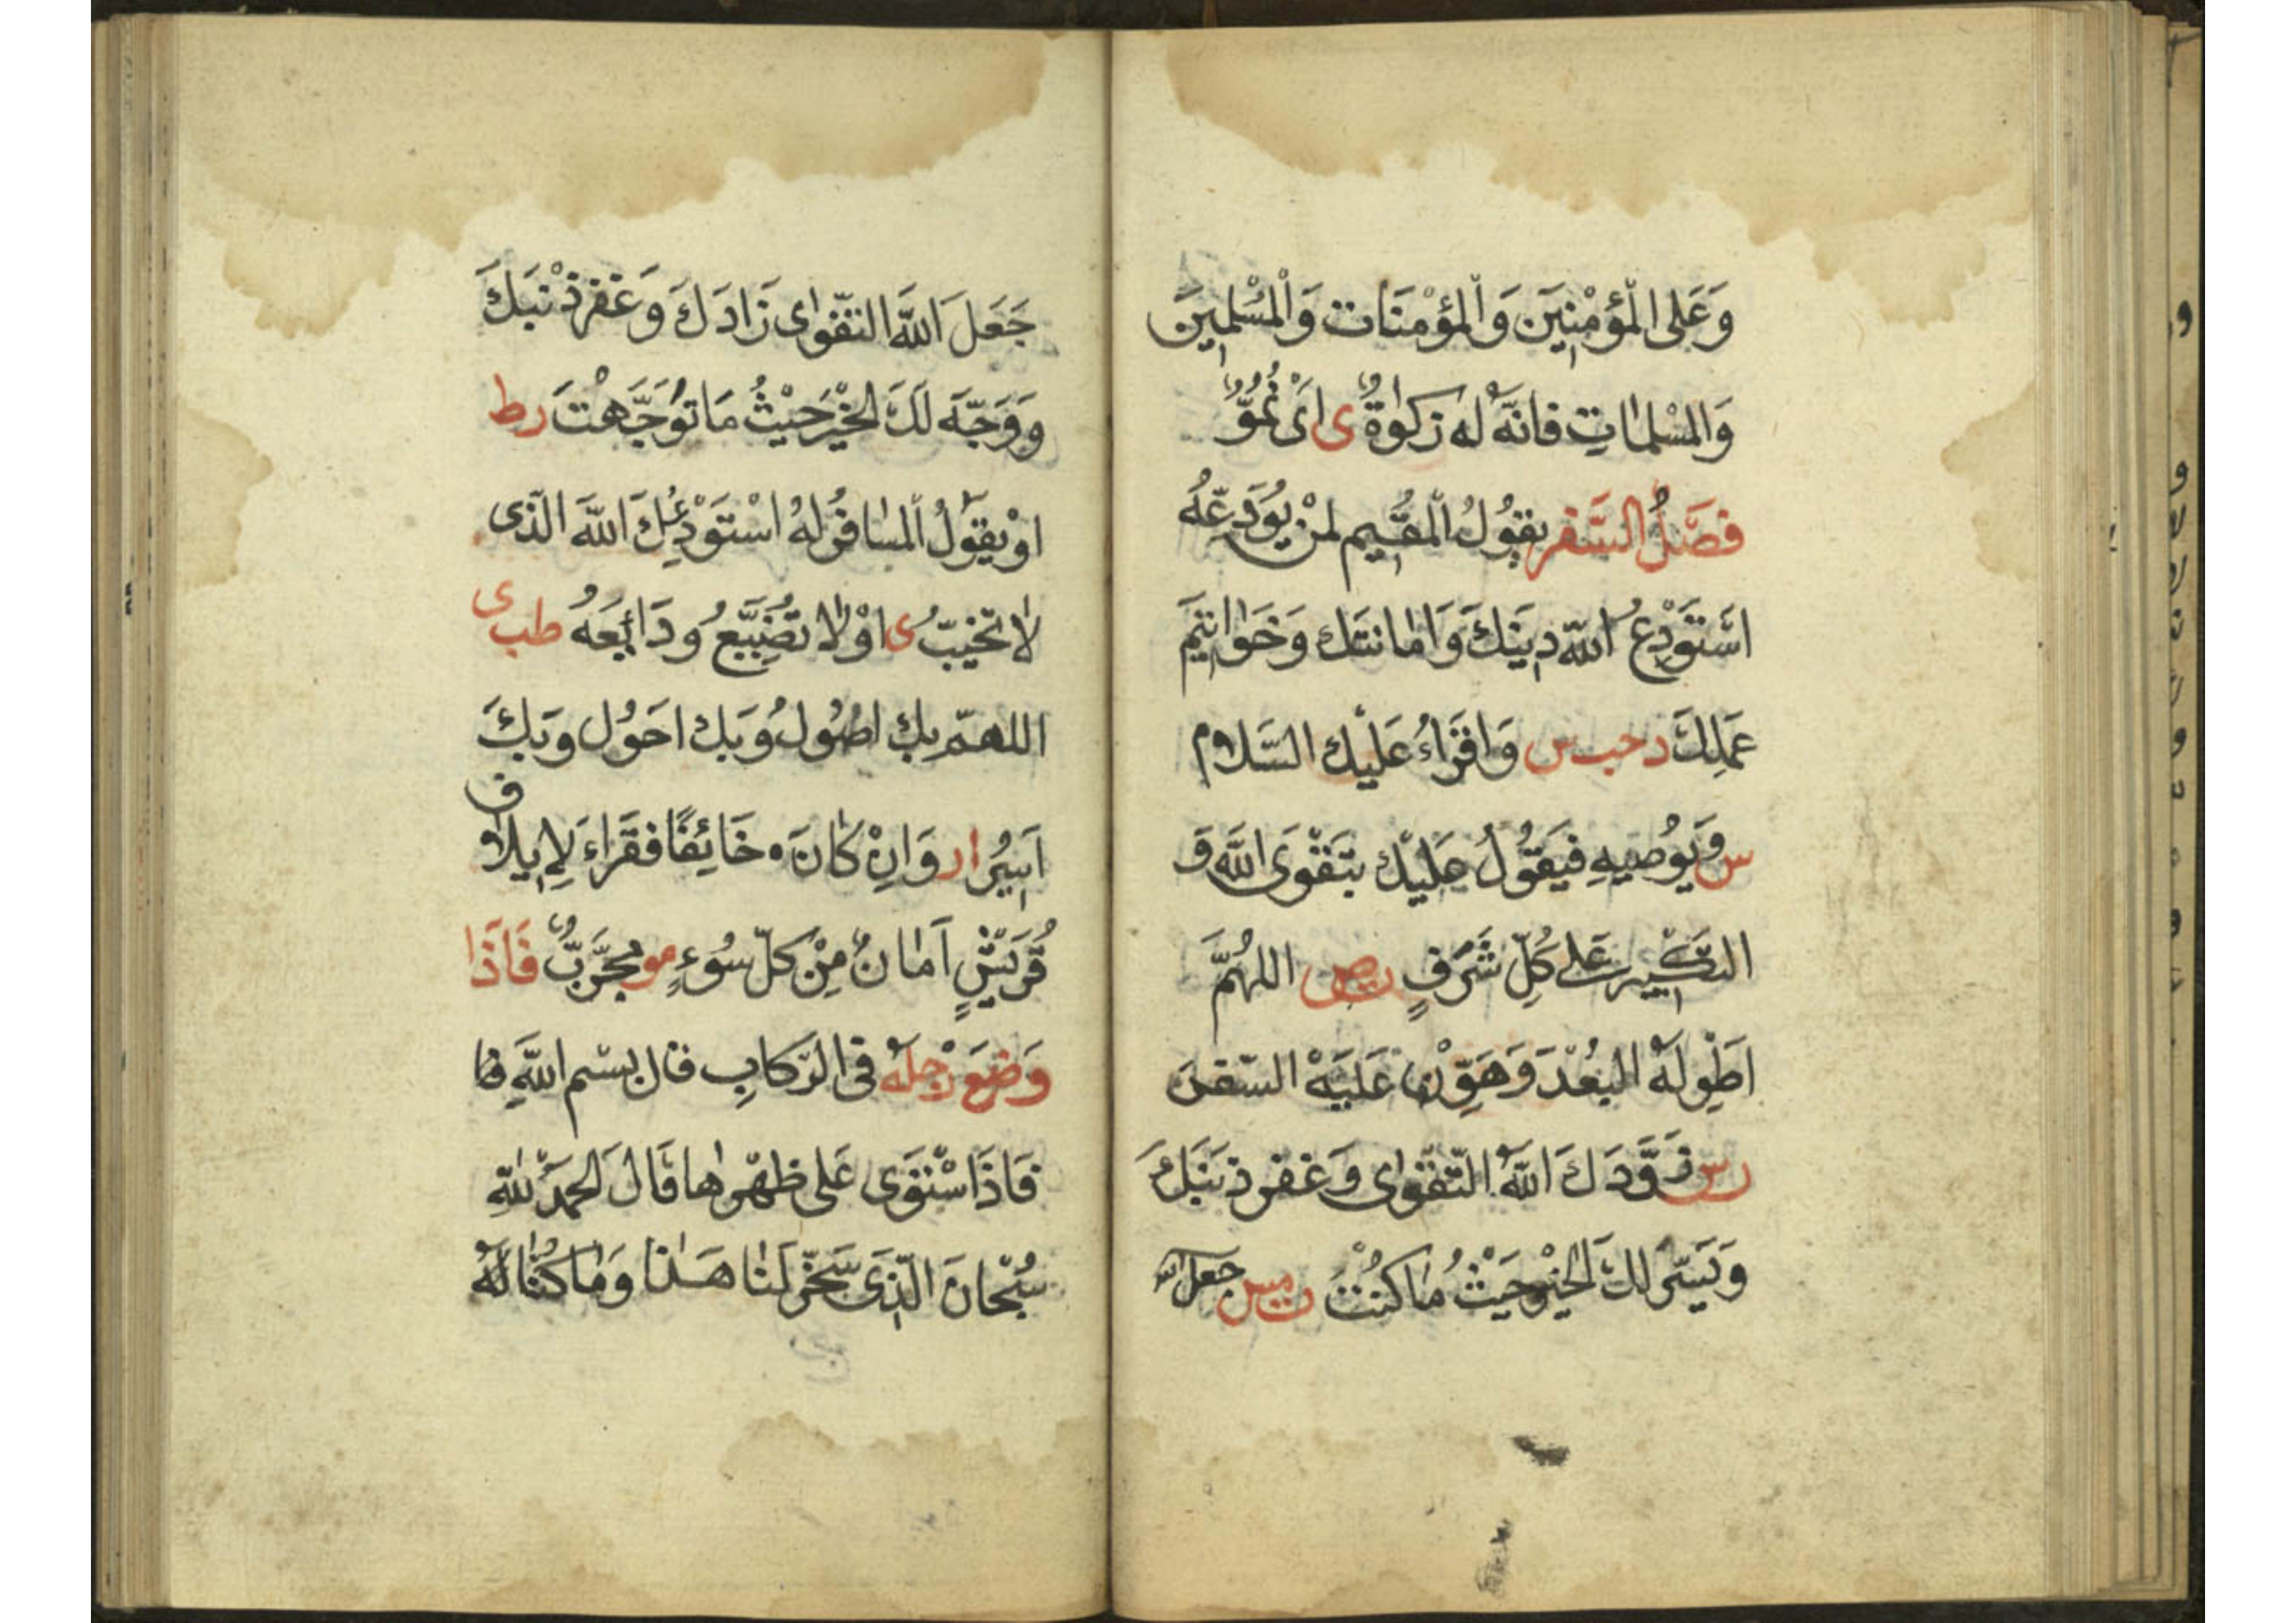 وَعَلَى الْمُؤْمِنِينَ وَالْمُؤْمِنَات وَالْمُسْلِمِينَ
وَالْمُسْلِمَاتِ فَانَّهُ لَهُ زَكٰوةٌ ى اَىْ نُمُوٌّ
فَصْلُ السَّفَر يَقُولُ الْمُقِيم لِمَنْ يُوَدِّعُهُ
اَسْتَوْدِعُ اللّٰه دِينَكَ وَاَمَانَتَكَ وَخَوَاتِيمَ
عَمَلِكَ د حب س وَاقْرَاُ عَلَيْك السَّلَام
س وَيُوصِيهِ فَيَقُولُ عَلَيْك بِتَقْوَى اللّٰهِ وَ
التَّكْبِير عَلى كُلِّ شَرَفٍ ر ص اللهُمَّ
اَطْوِ لَهُ الْبُعْدَ وَهَوِّنْ عَلَيْهِ السَّفَرَ
ر س زَوَّدَكَ اللّٰهُ التَّقْوٰى وَغَفَر ذَنْبَكَ
وَيَسَّر لَكَ الْخَيْرَ حَيْثُ مَا كُنْتَ ت مس جعل الله
جَعَلَ اللّٰهَ التَّقْوٰى زَادَكَ وَغَفَر ذَنْبَكَ
وَوَجَّهَ لَكَ الْخَيْرَ حَيْثُ مَا تَوَجَّهْتَ ر ط
اَوْ يَقُولُ الْمُسَافِرُ لَهُ اَسْتَوْدِعُكَ اللّٰهَ الَّذى
لَا تَخِيبُ ى اَوْ لَا تُضَيَّعُ وَدَائِعَهُ طب ى
اللهمّ بِكَ اَصُولُ وَبِكَ اَحُول وَبِكَ
اَسِيرُ ا ر وَاِنْ كَانَ خَائِفًا فَقَرَاءَ لِاِيلَافِ
قُرَيْشٍ اَمَانٌ مِنْ كُلّ سُوءٍ مو مُجَرَّبٌ فَاِذَا
وَضَعَ رِجْلَهُ فِى الرِّكَابِ قَال بِسْمِ اللّٰهِ فا
فَاِذَا اسْتَوَى عَلى ظَهْرِهَا قَالَ الْحَمْدُ لِلّٰهِ
سُبْحَانَ الَّذِى سَخَّر لَنَا هَذَا وَمَا كُنَّا لَهُ